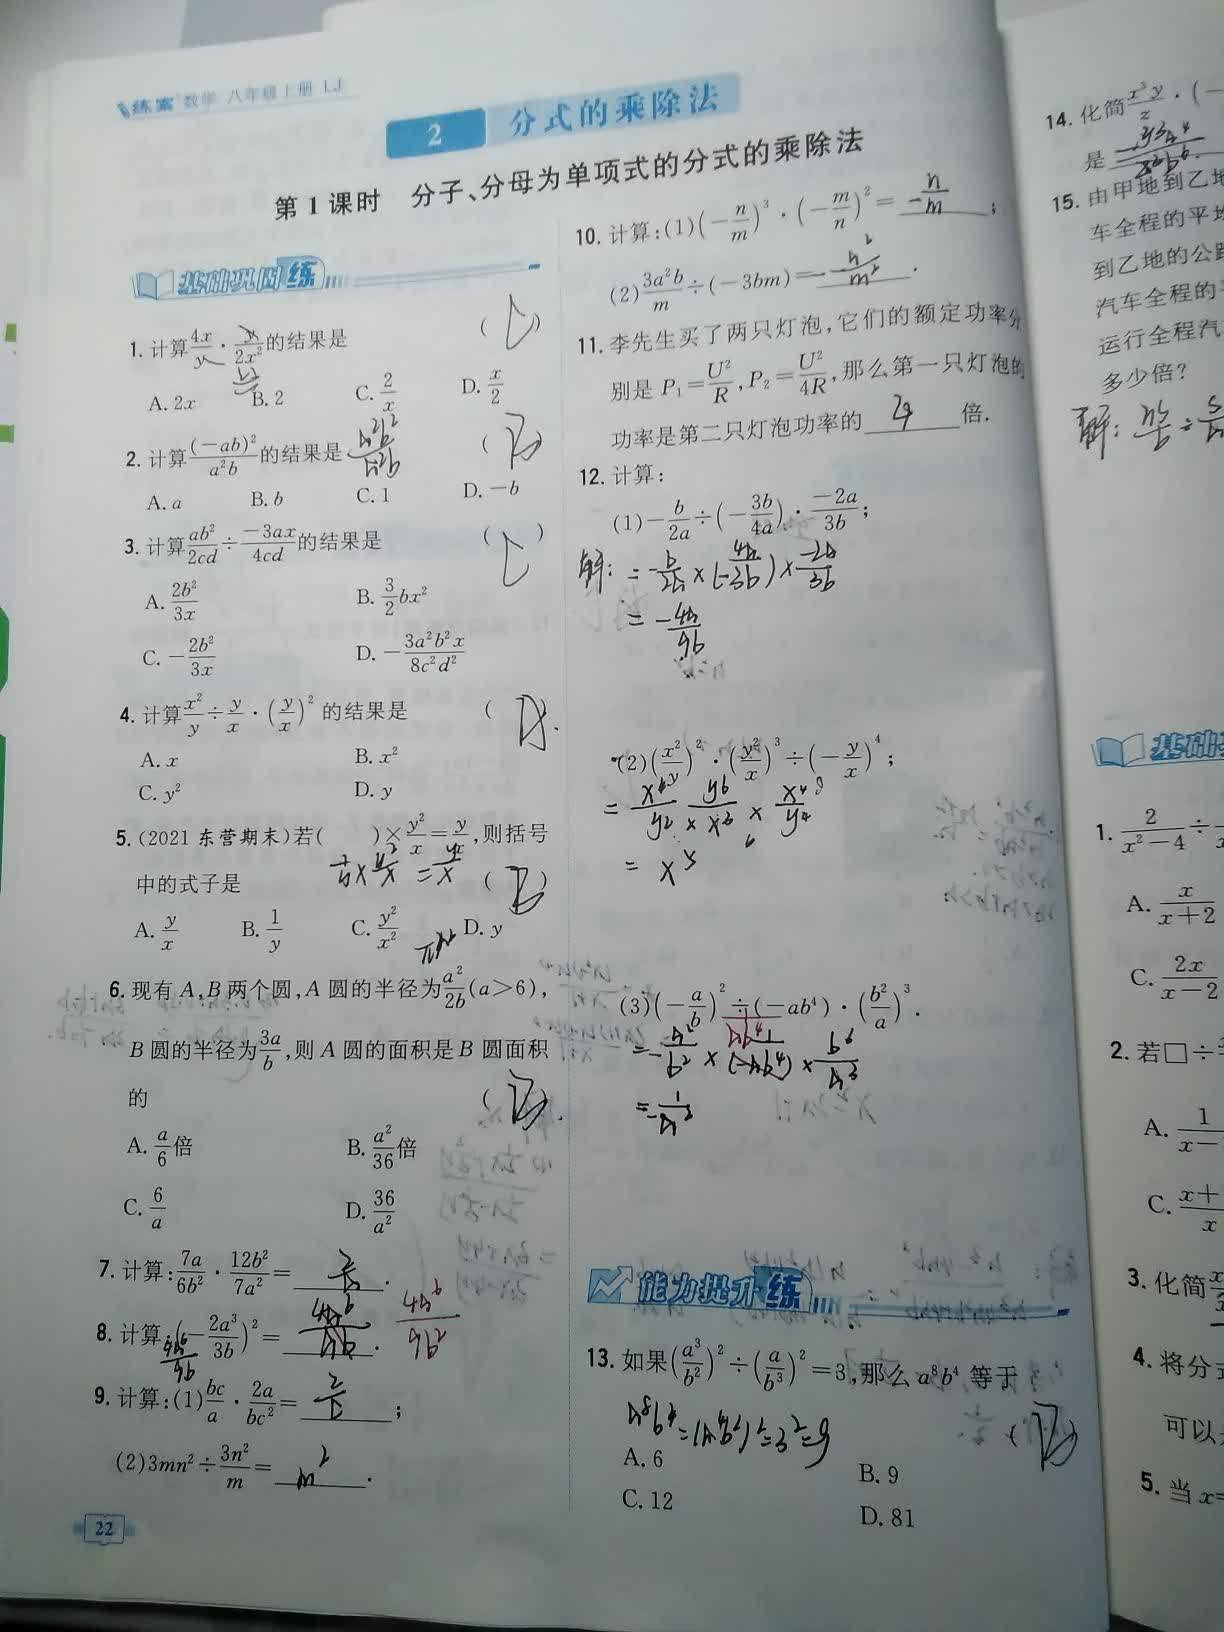 练案 数学 八年级上册 LJ
2 分式的乘除法
第1课时 分子、分母为单项式的分式的乘除法
基础巩固练
1. 计算4x/y · y/2x²的结果是 ( C )
A. 2x B. 2 C. 2/x D. x/2
2. 计算(-ab)²/a²b的结果是 a²b²/a²b ( B )
A. a B. b C. 1 D. -b
3. 计算ab²/2cd ÷ -3ax/4cd的结果是 ( C )
A. 2b²/3x B. 3/2 bx²
C. -2b²/3x D. -3a²b²x/8c²d²
4. 计算x²/y ÷ y/x · (y/x)² 的结果是 ( D )
A. x B. x²
C. y² D. y
5. (2021 东营期末)若( )×y²/x=y/x,则括号
中的式子是 ( B )
A. y/x B. 1/y C. y²/x² D. y
6. 现有 A,B 两个圆,A 圆的半径为a²/2b(a>6),
B 圆的半径为3a/b,则 A 圆的面积是 B 圆面积
的 ( B )
A. a/6倍 B. a²/36倍
C. 6/a D. 36/a²
7. 计算:7a/6b² · 12b²/7a²= 2/a .
8. 计算:(-2a³/3b)²= . 4a⁶/9b²
9. 计算:(1)bc/a · 2a/bc²= 2/c ;
(2)3mn²÷3n²/m= m² .
22
10. 计算:(1)(-n/m)³ · (-m/n)²= -n/m ;
(2)3a²b/m÷(-3bm)= -a²/m² .
11. 李先生买了两只灯泡,它们的额定功率分
别是 P₁=U²/R,P₂=U²/4R,那么第一只灯泡的
功率是第二只灯泡功率的 4 倍.
12. 计算:
(1)-b/2a÷(-3b/4a) · -2a/3b;
解: = -b/2a × (4a/-3b) × -2a/3b
= -4a/9b
(2)(x²/y)² · (y²/x)³÷(-y/x)⁴;
= x⁴/y² × y⁶/x³ × x⁴/y⁴
= x⁵
(3)(-a/b)²÷(-ab⁴) · (b²/a)³.
= -a²/b² × 1/(-ab⁴) × b⁶/a³
= -1/a²
能力提升练
13. 如果(a³/b²)²÷(a/b³)²=3,那么 a⁸b⁴ 等于
a⁸b⁴=(a⁴b²)²=3²=9 ( B )
A. 6 B. 9
C. 12 D. 81
14. 化简x³y/z · (-
是
15. 由甲地到乙地
车全程的平均
到乙地的公路
汽车全程的平
运行全程汽
多少倍?
解:
基础
1. 2/x²-4 ÷
A. x/x+2
C. 2x/x-2
2. 若□÷
A. 1/x-
C. x+/x
3. 化简
4. 将分式
可以
5. 当 x=